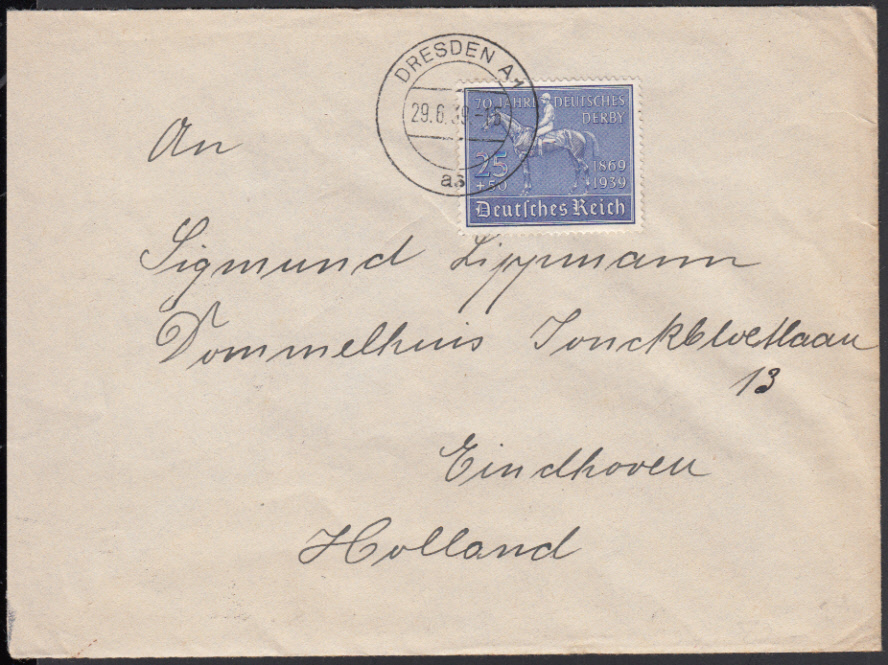 DRESDEN A1
29.6.39.-16
as
70 JAHRE DEUTSCHES
DERBY
25
+50
1869
1939
Deutsches Reich
An
Sigmund Lippmann
Dommelhuis Jonckbloetlaan
13
Eindhoven
Holland